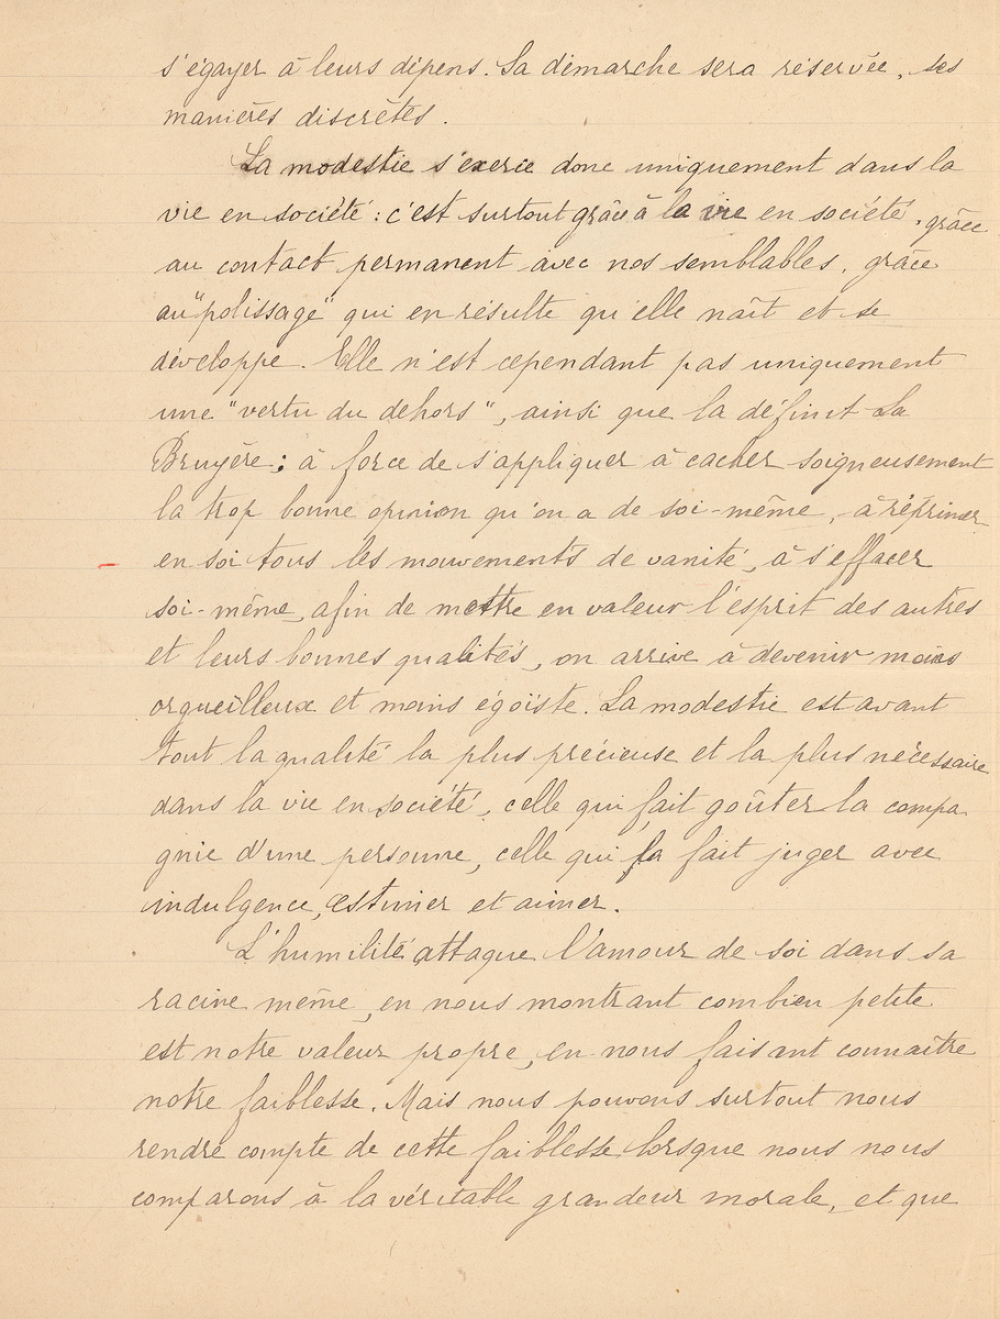 s'égayer à leurs dépens. Sa démarche sera réservée, ses
manières discrètes.
La modestie s'exerce donc uniquement dans la
vie en société : c'est surtout grâce à la vie en société, grâce
au contact permanent avec nos semblables, grâce
au "polissage" qui en résulte qu'elle naît et se
développe. Elle n'est cependant pas uniquement
une "vertu du dehors", ainsi que la définit La
Bruyère ; à force de s'appliquer à cacher soigneusement
la trop bonne opinion qu'on a de soi-même, à réprimer
en soi tous les mouvements de vanité, à s'effacer
soi-même, afin de mettre en valeur l'esprit des autres
et leurs bonnes qualités, on arrive à devenir moins
orgueilleux et moins égoïste. La modestie est avant
tout la qualité la plus précieuse et la plus nécessaire
dans la vie en société, celle qui fait goûter la compa
gnie d'une personne, celle qui la fait juger avec
indulgence, estimer et aimer.
L'humilité attaque l'amour de soi dans sa
racine même, en nous montrant combien petite
est notre valeur propre, en nous faisant connaître
notre faiblesse. Mais nous pouvons surtout nous
rendre compte de cette faiblesse lorsque nous nous
comparons à la véritable grandeur morale, et que